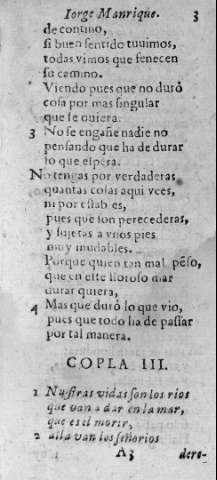 Iorge Manrique. 3
de contino,
si buen sentido tuuimos,
todas vimos que fenecen
su camino.
Viendo pues que no duró
cosa por mas singular
que se quiera.
3 No se engañe nadie no
pensando que ha de durar
lo que espera.
No tengas por verdaderas
quantas cosas aqui vees,
ni por estables,
pues que son perecederas,
y sujetas a vnos pies
muy mudables.
Porque quien tan mal pẽso,
que en este lloroso mar
durar quiera,
4 Mas que duró lo que vio,
pues que todo ha de passar
por tal manera.
COPLA III.
1 Nuestras vidas son los rios
que van a dar en la mar,
que es el morir,
2 alla van los señorios
A3 dere-